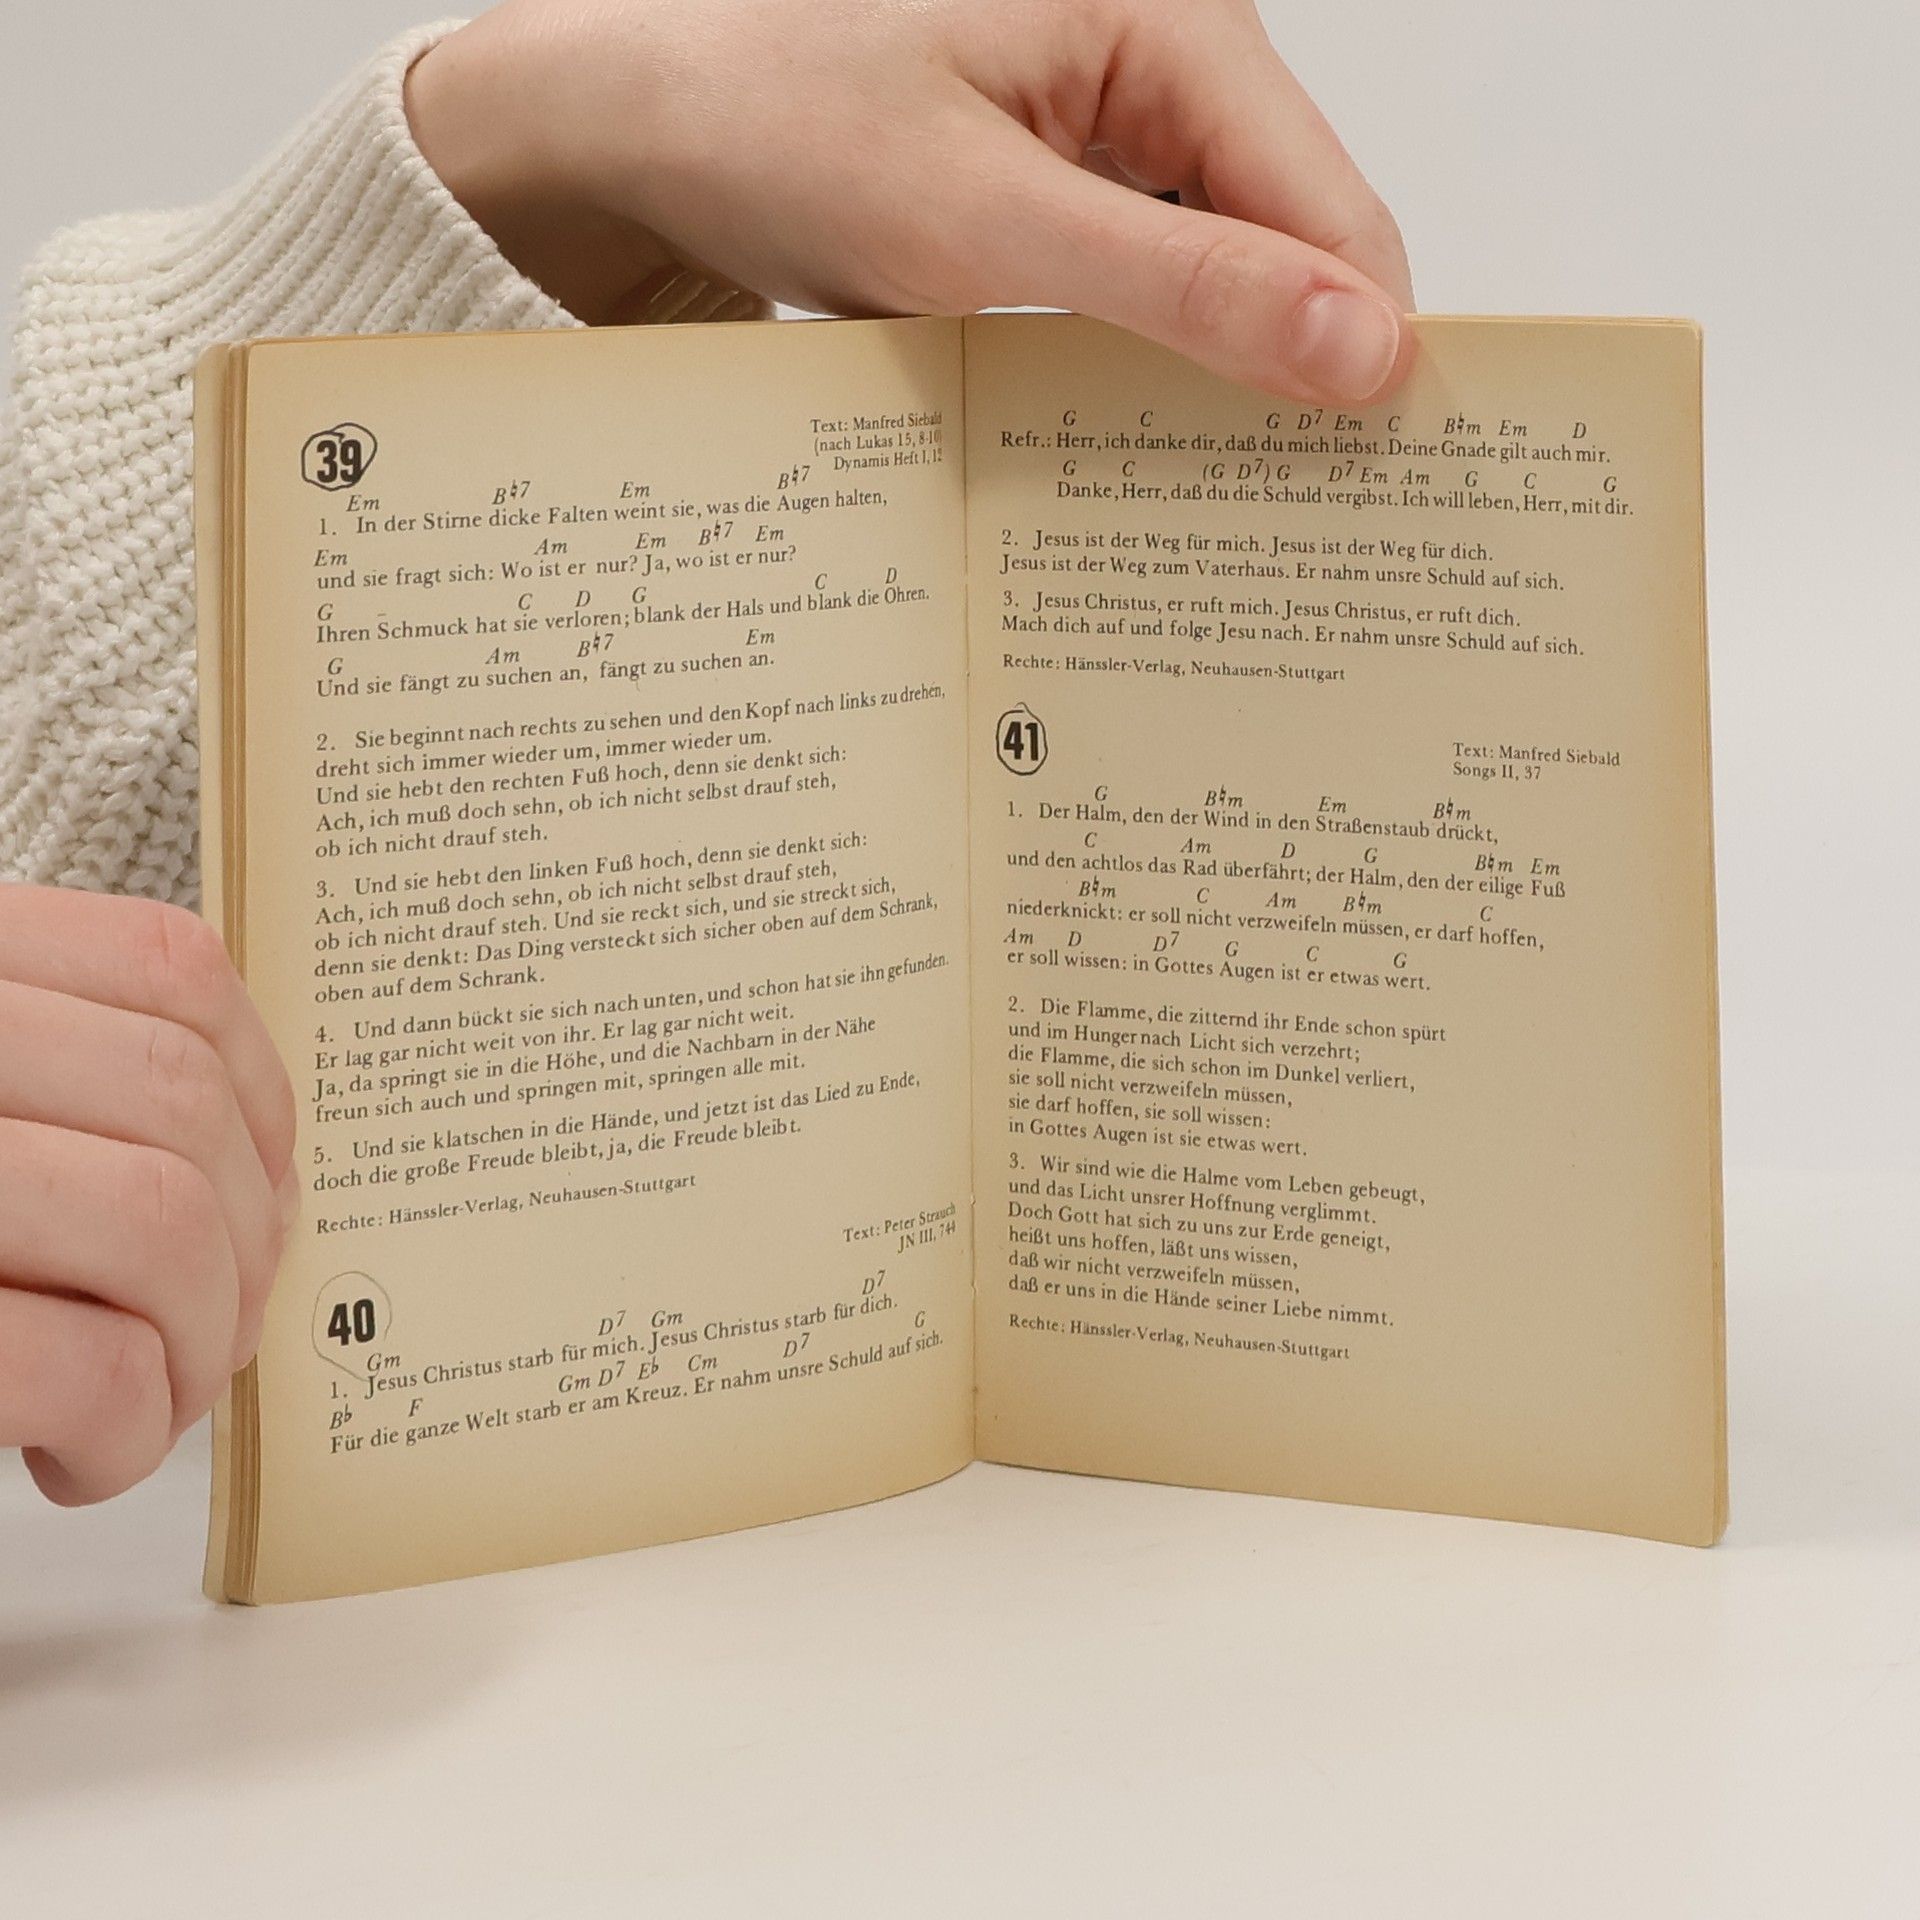 39
Text: Manfred Siebald
(nach Lukas 15, 8-10)
Dynamis Heft I, 12
Em B♮7 Em B♮7
1. In der Stirne dicke Falten weint sie, was die Augen halten,
Em Am Em B♮7 Em
und sie fragt sich: Wo ist er nur? Ja, wo ist er nur?
G C D G C D
Ihren Schmuck hat sie verloren; blank der Hals und blank die Ohren.
G Am B♮7 Em
Und sie fängt zu suchen an, fängt zu suchen an.
2. Sie beginnt nach rechts zu sehen und den Kopf nach links zu drehen,
dreht sich immer wieder um, immer wieder um.
Und sie hebt den rechten Fuß hoch, denn sie denkt sich:
Ach, ich muß doch sehn, ob ich nicht selbst drauf steh,
ob ich nicht drauf steh.
3. Und sie hebt den linken Fuß hoch, denn sie denkt sich:
Ach, ich muß doch sehn, ob ich nicht selbst drauf steh,
ob ich nicht drauf steh. Und sie reckt sich, und sie streckt sich,
denn sie denkt: Das Ding versteckt sich sicher oben auf dem Schrank,
oben auf dem Schrank.
4. Und dann bückt sie sich nach unten, und schon hat sie ihn gefunden.
Er lag gar nicht weit von ihr. Er lag gar nicht weit.
Ja, da springt sie in die Höhe, und die Nachbarn in der Nähe
freun sich auch und springen mit, springen alle mit.
5. Und sie klatschen in die Hände, und jetzt ist das Lied zu Ende,
doch die große Freude bleibt, ja, die Freude bleibt.
Rechte: Hänssler-Verlag, Neuhausen-Stuttgart
Text: Peter Strauch
JN III, 744
40
Gm D7 Gm D7
1. Jesus Christus starb für mich. Jesus Christus starb für dich.
B♭ F Gm D7 E♭ Cm D7 G
Für die ganze Welt starb er am Kreuz. Er nahm unsre Schuld auf sich.
G C G D7 Em C B♮m Em D
Refr.: Herr, ich danke dir, daß du mich liebst. Deine Gnade gilt auch mir.
G C (G D7) G D7 Em Am G C G
Danke, Herr, daß du die Schuld vergibst. Ich will leben, Herr, mit dir.
2. Jesus ist der Weg für mich. Jesus ist der Weg für dich.
Jesus ist der Weg zum Vaterhaus. Er nahm unsre Schuld auf sich.
3. Jesus Christus, er ruft mich. Jesus Christus, er ruft dich.
Mach dich auf und folge Jesu nach. Er nahm unsre Schuld auf sich.
Rechte: Hänssler-Verlag, Neuhausen-Stuttgart
41
Text: Manfred Siebald
Songs II, 37
G B♮m Em B♮m
1. Der Halm, den der Wind in den Straßenstaub drückt,
C Am D G B♮m Em
und den achtlos das Rad überfährt; der Halm, den der eilige Fuß
B♮m C Am B♮m C
niederknickt: er soll nicht verzweifeln müssen, er darf hoffen,
Am D D7 G C G
er soll wissen: in Gottes Augen ist er etwas wert.
2. Die Flamme, die zitternd ihr Ende schon spürt
und im Hunger nach Licht sich verzehrt;
die Flamme, die sich schon im Dunkel verliert,
sie soll nicht verzweifeln müssen,
sie darf hoffen, sie soll wissen:
in Gottes Augen ist sie etwas wert.
3. Wir sind wie die Halme vom Leben gebeugt,
und das Licht unsrer Hoffnung verglimmt.
Doch Gott hat sich zu uns zur Erde geneigt,
heißt uns hoffen, läßt uns wissen,
daß wir nicht verzweifeln müssen,
daß er uns in die Hände seiner Liebe nimmt.
Rechte: Hänssler-Verlag, Neuhausen-Stuttgart